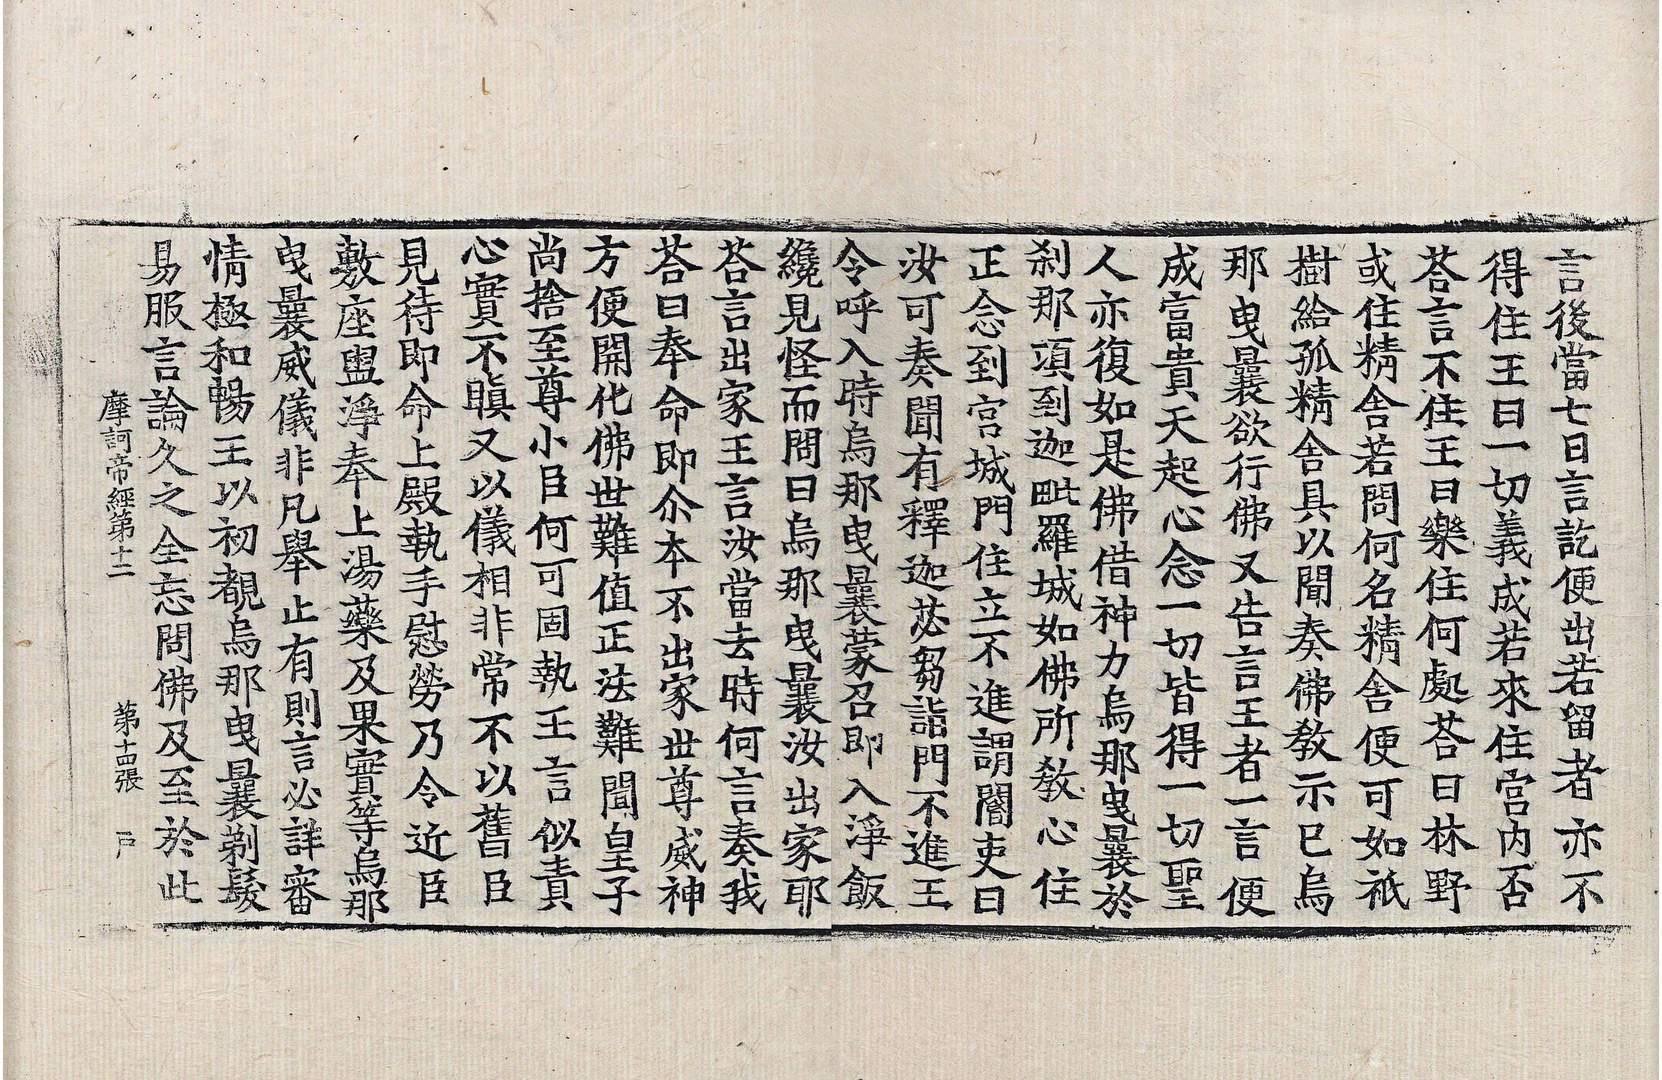 言後當七日言訖便出若留者亦不
得住王曰一切義成若來住宮内否
荅言不住王曰樂住何處荅曰林野
或住精舍若問何名精舍便可如祇
樹給孤精舍具以聞奏佛教示已烏
那曳曩欲行佛又告言王者一言便
成富貴天起心念一切皆得一切聖
人亦復如是佛借神力烏那曳曩於
刹那頃到迦毗羅城如佛所教心住
正念到宮城門住立不進謂閽吏曰
汝可奏聞有釋迦苾芻詣門不進王
令呼入時烏那曳曩蒙召即入淨飯
纔見怪而問曰烏那曳曩汝出家耶
荅言出家王言汝當去時何言奏我
荅曰奉命即尒本不出家世尊威神
方便開化佛世難值正法難聞皇子
尚捨至尊小臣何可固執王言似責
心實不瞋又以儀相非常不以舊臣
見待即命上殿執手慰勞乃令近臣
敷座盥淨奉上湯藥及果實等烏那
曳曩威儀非凡舉止有則言必詳審
情極和暢王以初覩烏那曳曩剃髮
易服言論久之全忘問佛及至於此
摩訶帝經第十二 第十四張 戶